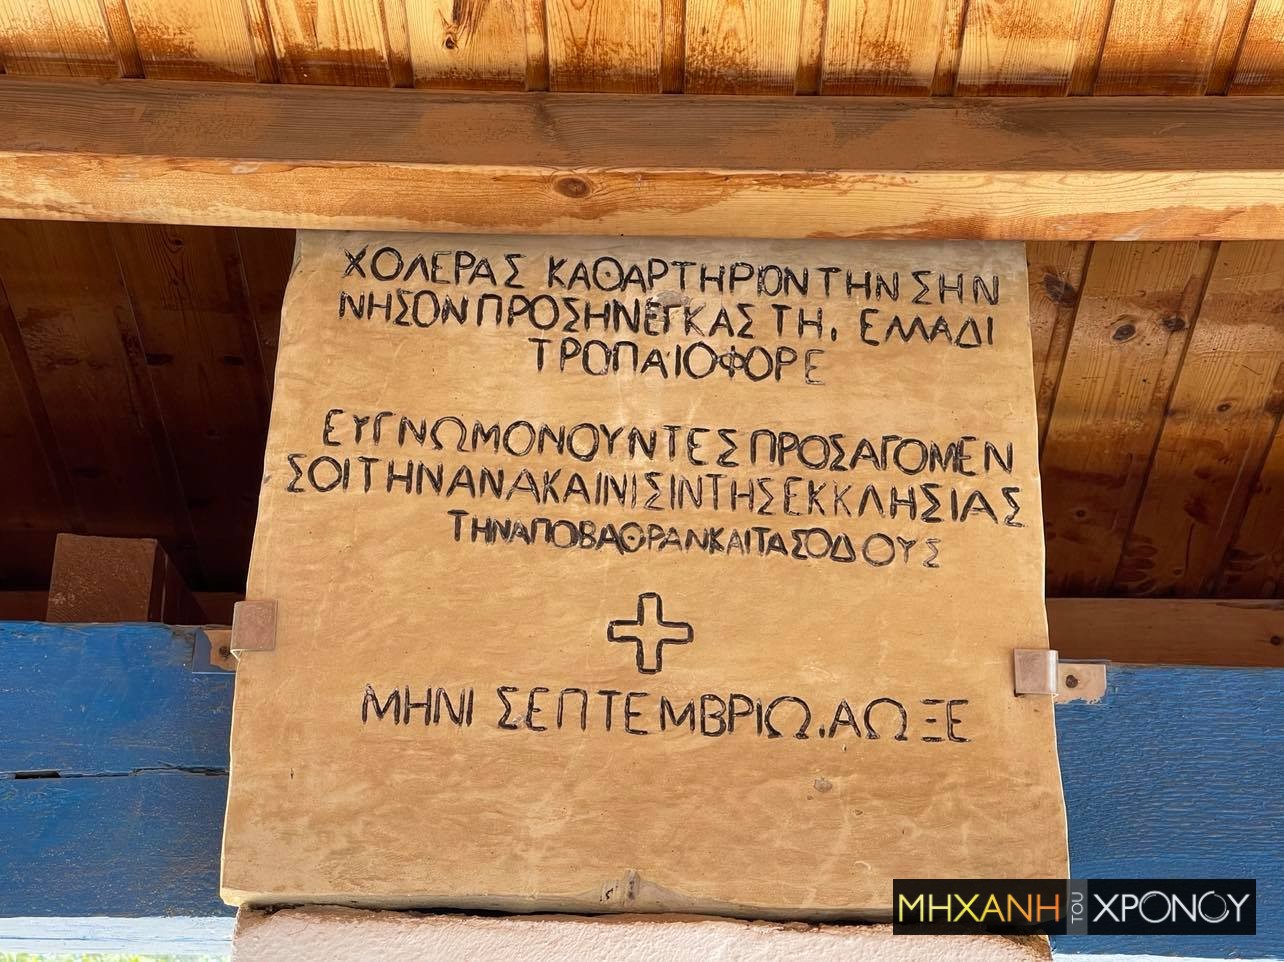 ΧΟΛΕΡΑΣ ΚΑΘΑΡΤΗΡΙΟΝ ΤΗΝ ΣΗΝ
ΝΗΣΟΝ ΠΡΟΣΗΝΕΓΚΑΣ ΤΗ. ΕΛΛΑΔΙ
ΤΡΟΠΑΙΟΦΟΡΕ
ΕΥΓΝΩΜΟΝΟΥΝΤΕΣ ΠΡΟΣΑΓΟΜΕΝ
ΣΟΙ ΤΗΝ ΑΝΑΚΑΙΝΙΣΙΝ ΤΗΣ ΕΚΚΛΗΣΙΑΣ
ΤΗΝ ΑΠΟΒΑΘΡΑΝ ΚΑΙ ΤΑΣ ΟΔΟΥΣ
ΜΗΝΙ ΣΕΠΤΕΜΒΡΙΩ. ΑΩΞΕ
ΜΗΧΑΝΗ ΤΟΥ ΧΡΟΝΟΥ